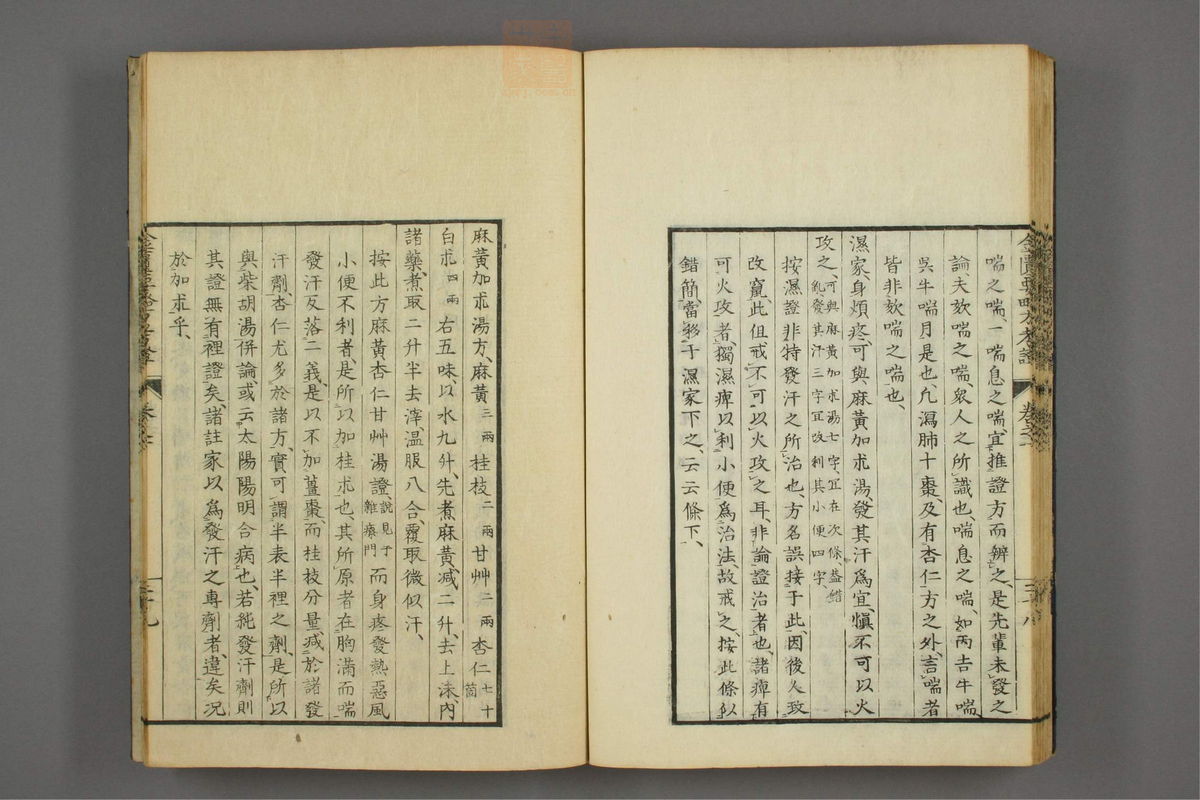 喘之喘、一喘息之喘、宜推證方而辨之、是先輩未發之
論、夫欬喘之喘、衆人之所識也、喘息之喘、如丙吉牛喘、
吳牛喘月是也、凢瀉肺十棗、及有杏仁方之外、言喘者
皆非欬喘之喘也、
濕家、身煩疼、可與麻黃加朮湯、發其汗爲宜、愼不可以火
攻之、可與麻黃加朮湯七字、宜在次條、葢錯
亂、發其汗三字宜改利其小便四字、
按濕證非特發汗之所治也、方名誤接于此、因後人致
改竄、此但戒不可以火攻之耳、非論證治者也、諸痺有
可火攻者、獨濕痺以利小便爲治法、故戒之、按此條似
錯簡、當移于濕家下之、云云條下、
三十八
麻黃加朮湯方、麻黃三兩 桂枝二兩 甘艸二兩 杏仁七十箇
白朮四兩 右五味、以水九升、先煮麻黃、減二升、去上沫、內
諸藥、煮取二升半、去滓、溫服八合、覆取微似汗、
按此方麻黃杏仁甘艸湯證、說見于雜療門 而身疼發熱惡風
小便不利者、是所以加桂朮也、其所原者在胸滿而喘
發汗反落二義、是以不加薑棗、而桂枝分量減於諸發
汗劑、杏仁尤多於諸方、實可謂半表半裡之劑、是所以
與柴胡湯併論、或云、太陽陽明合病也、若純發汗劑、則
其證無有裡證矣、諸註家以爲發汗之專劑者、違矣、況
於加朮乎、
三十九